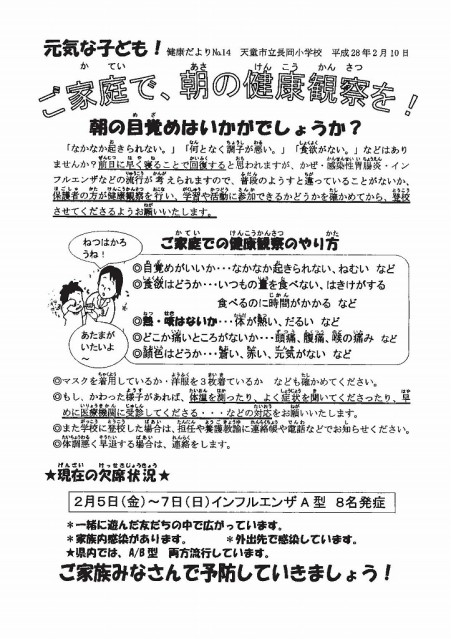 元気な子ども！ 健康だよりNo.14 天童市立長岡小学校 平成28年2月10日
ご家庭で、朝の健康観察を！
朝の目覚めはいかがでしょうか？
「なかなか起きられない。」「何となく調子が悪い。」「食欲がない。」などはあり
ませんか？前日に早く寝ることで回復すると思われますが、かぜ・感染性胃腸炎・イン
フルエンザなどの流行が考えられますので、普段のようすと違っていることがないか、
保護者の方が健康観察を行い、学習や活動に参加できるかどうかを確かめてから、登校
させてくださるようお願いいたします。
ねつはかろうね！
あたまがいたいよ～
ご家庭での健康観察のやり方
◎目覚めがいいか・・・なかなか起きられない、ねむい など
◎食欲はどうか・・・いつもの量を食べない、はきけがする
食べるのに時間がかかる など
◎熱・咳はないか・・・体が熱い、だるい など
◎どこか痛いところがないか・・・頭痛、腹痛、喉の痛み など
◎顔色はどうか・・・蒼い、赤い、元気がない など
◎マスクを着用しているか・洋服を3枚着ているか なども確かめてください。
◎もし、かわった様子があれば、体温を測ったり、よく症状を聞いてくださったり、早
めに医療機関に受診してくださる・・・などの対応をお願いいたします。
◎また学校に登校した場合は、担任や養護教諭に連絡帳や電話などでお知らせください。
◎体調悪く早退する場合は、連絡をします。
★現在の欠席状況★
2月5日(金)～7日(日)インフルエンザA型 8名発症
＊一緒に遊んだ友だちの中で広がっています。
＊家族内感染があります。 ＊外出先で感染しています。
★県内では、A/B型 両方流行しています。
ご家族みなさんで予防していきましょう！